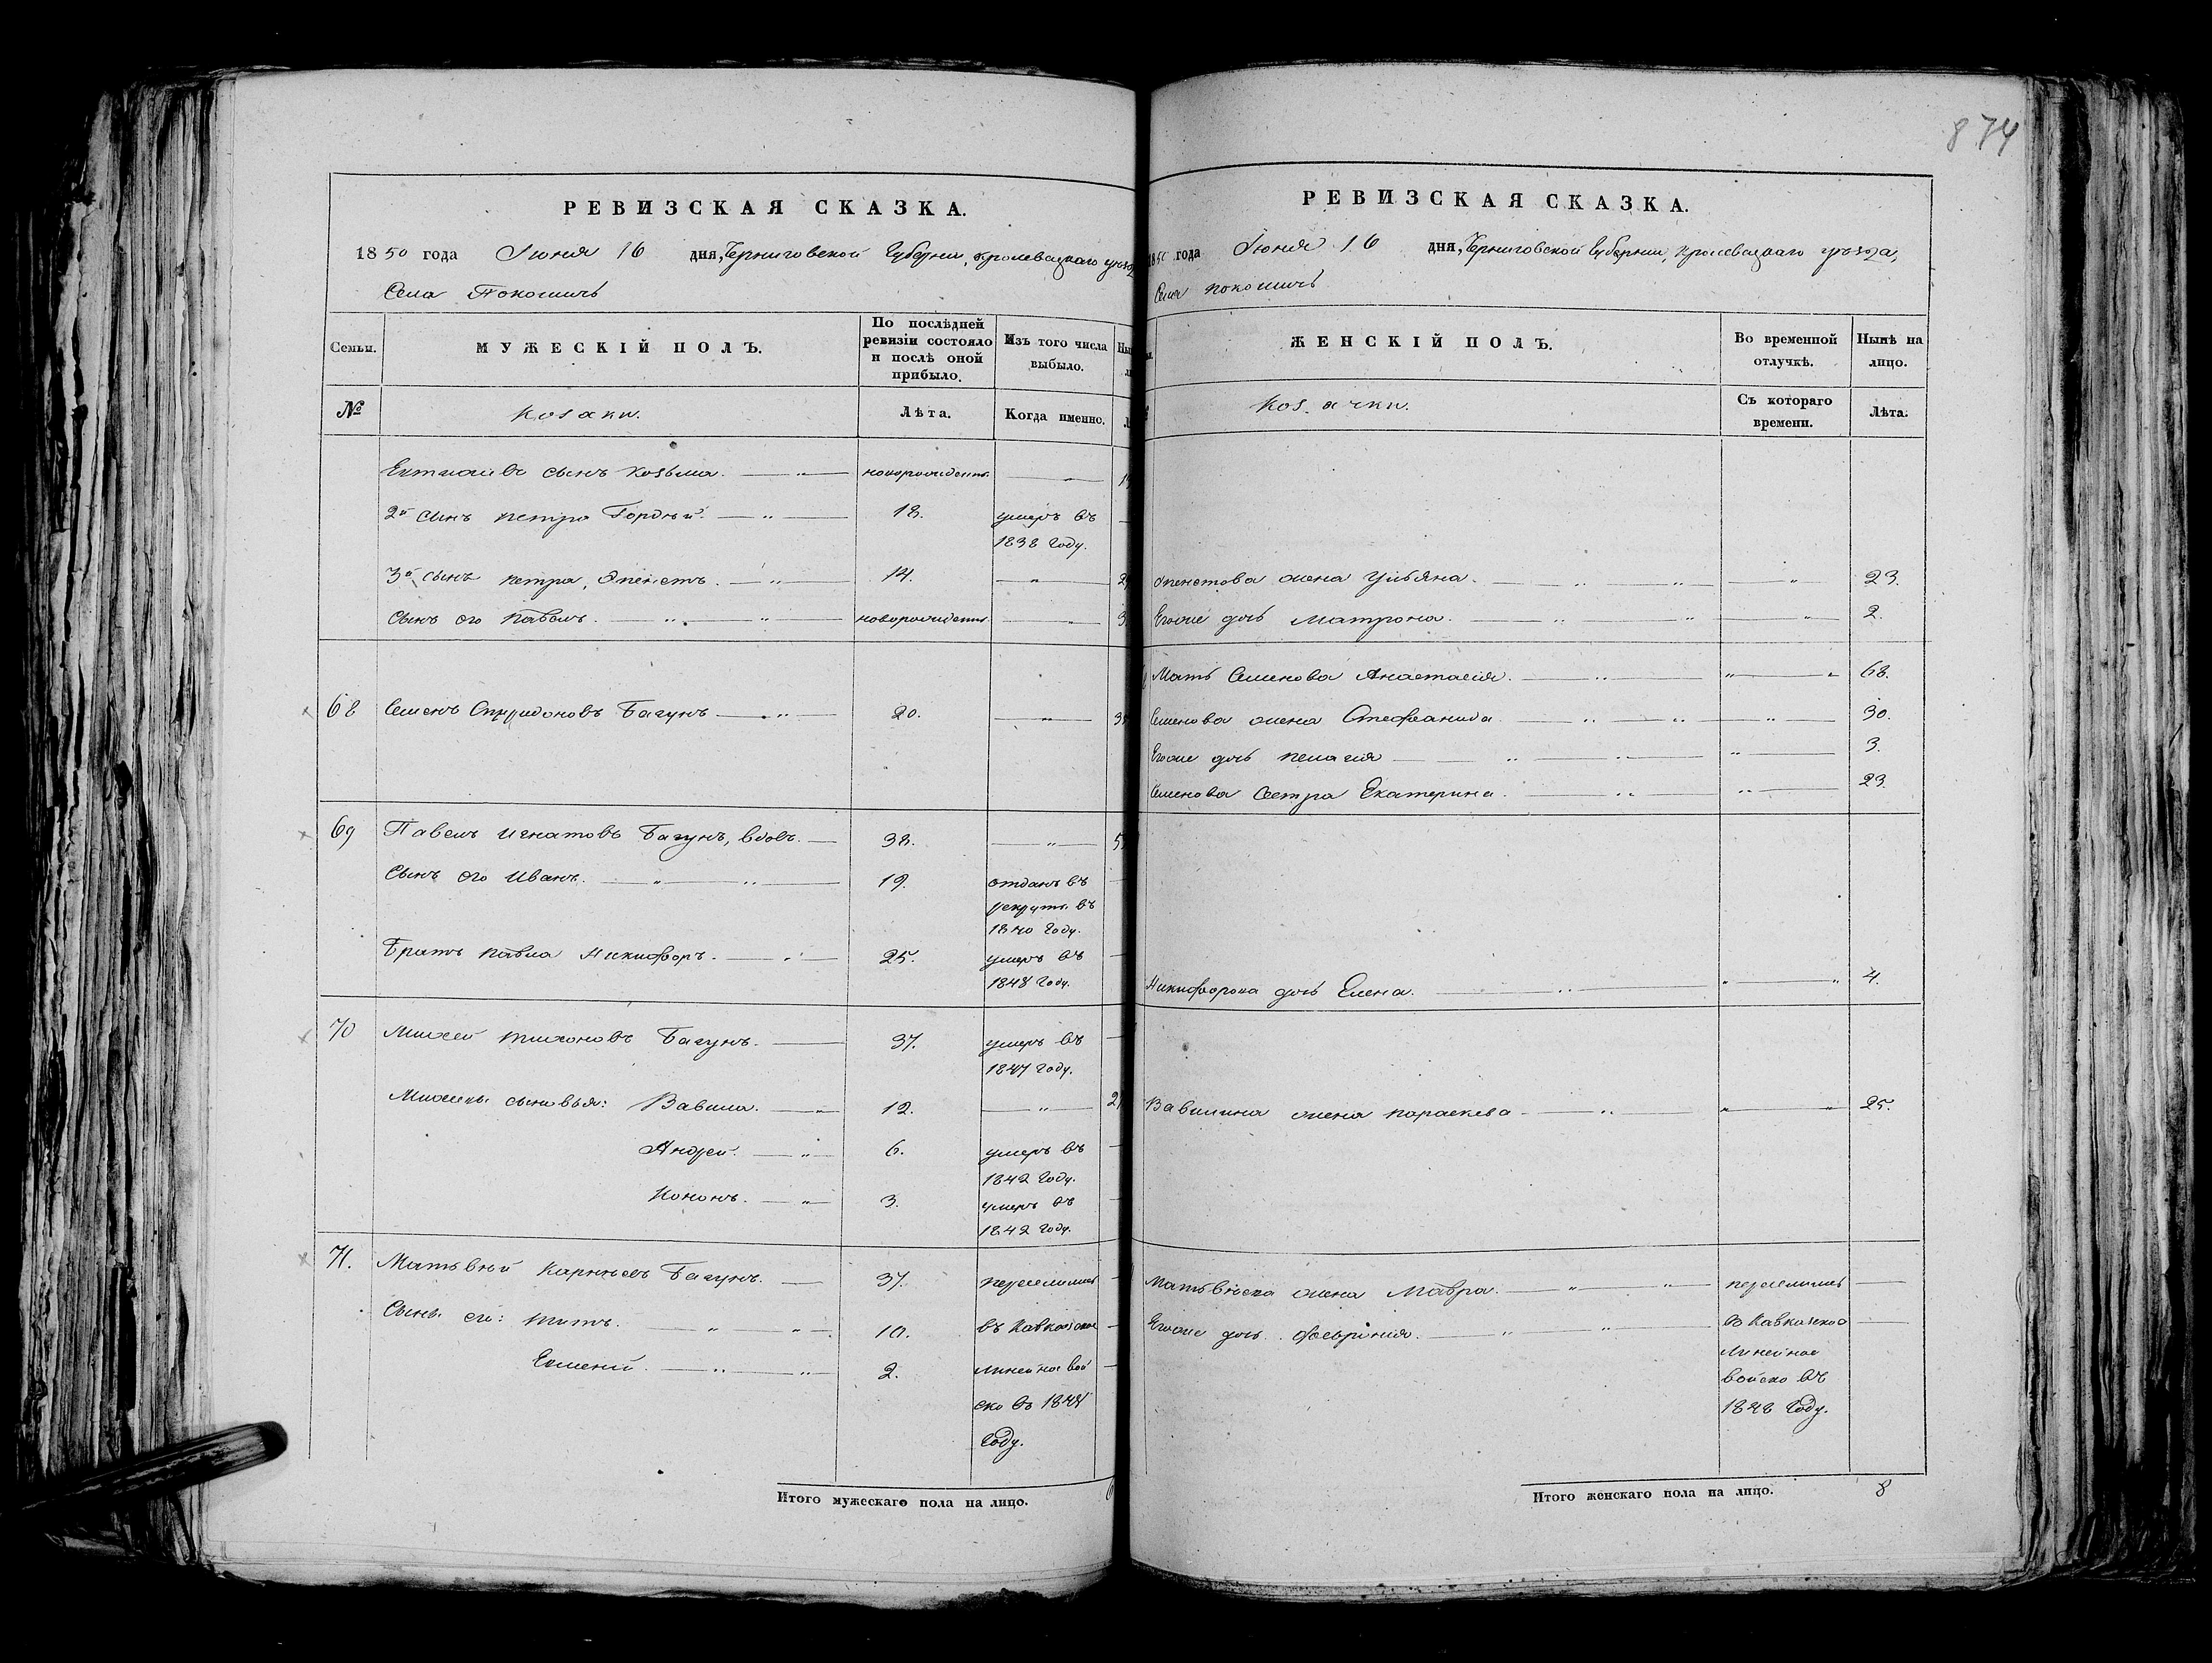 874
РЕВИЗСКАЯ СКАЗКА.
1850 года Июня 16 дня, Черниговской Губерни, Кролевецкаго уѣзд
Села Покошичъ
Семьи. МУЖЕСКІЙ ПОЛЪ. По послѣдней ревизіи состояло и послѣ оной прибыло. Изъ того числа выбыло.
№ Козаки. Лѣта. Когда именно.
сынъ Козьма. новорожденъ. 1
2й сынъ Петра Гордѣй. 18. умеръ въ
1838 году.
3й сынъ Петра, Опенетъ. 14. 2
Сынъ его Павелъ. новорожденъ. 3
68 Семенъ Спиридоновъ Багунъ 20. 3
69 Павелъ Игнатовъ Багунъ, вдовъ. 38. 5
Сынъ его Иванъ. 19. отданъ въ
рекруты въ
1840 году.
Братъ Павла Никифоръ. 25. умеръ въ
1848 году.
70 Михей Тихоновъ Багунъ. 37. умеръ въ
1847 году.
Михеевы сыновья: Вавила. 12. 2
Андрей. 6. умеръ въ
1842 году.
Кононъ. 3. умеръ въ
1842 году.
71. Матвѣй Карпѣевъ Багунъ. 37. переселились
Сыны его: Титъ. 10. въ Кавказское
Евменій. 2. линейное вой
ско въ 1848
году.
Итого мужескаго пола на лицо. 6
РЕВИЗСКАЯ СКАЗКА.
1850 года Июня 16 дня, Черниговской Губернии, Кролевецкаго уѣзда,
Села Покошичъ
ЖЕНСКІЙ ПОЛЪ. Во временной отлучкѣ. Нынѣ на лицо.
Козачки. Съ котораго времени. Лѣта.
Опенетова жена Ульяна. 23.
Егоже дочь Матрона. 2.
Мать Семенова Анастасія. 68.
Семенова жена Стефанида. 30.
Егоже дочь Пелагія 3.
Семенова Сестра Екатерина. 23.
Никифорова дочь Елена. 4.
Вавилина жена Параскева 25.
Матвѣева жена Мавра. переселились
Егоже дочь Февронія. въ Кавказкое
линейное
войско въ
1848 году.
Итого женскаго пола на лицо. 8